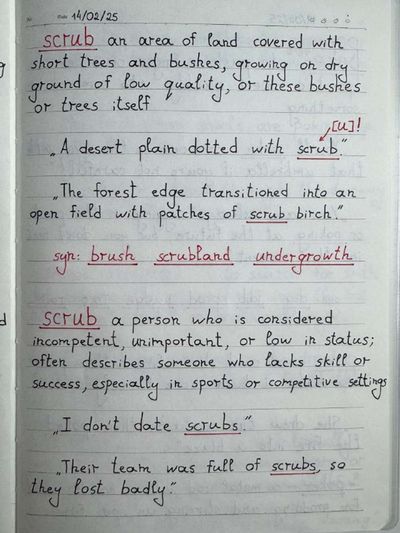 Date 14/02/25
scrub an area of land covered with
short trees and bushes, growing on dry
ground of low quality, or these bushes
or trees itself
[u]!
„A desert plain dotted with scrub."
„The forest edge transitioned into an
open field with patches of scrub birch."
syn: brush scrubland undergrowth
scrub a person who is considered
incompetent, unimportant, or low in status;
often describes someone who lacks skill or
success, especially in sports or competitive settings
„I don't date scrubs."
„Their team was full of scrubs, so
they lost badly."